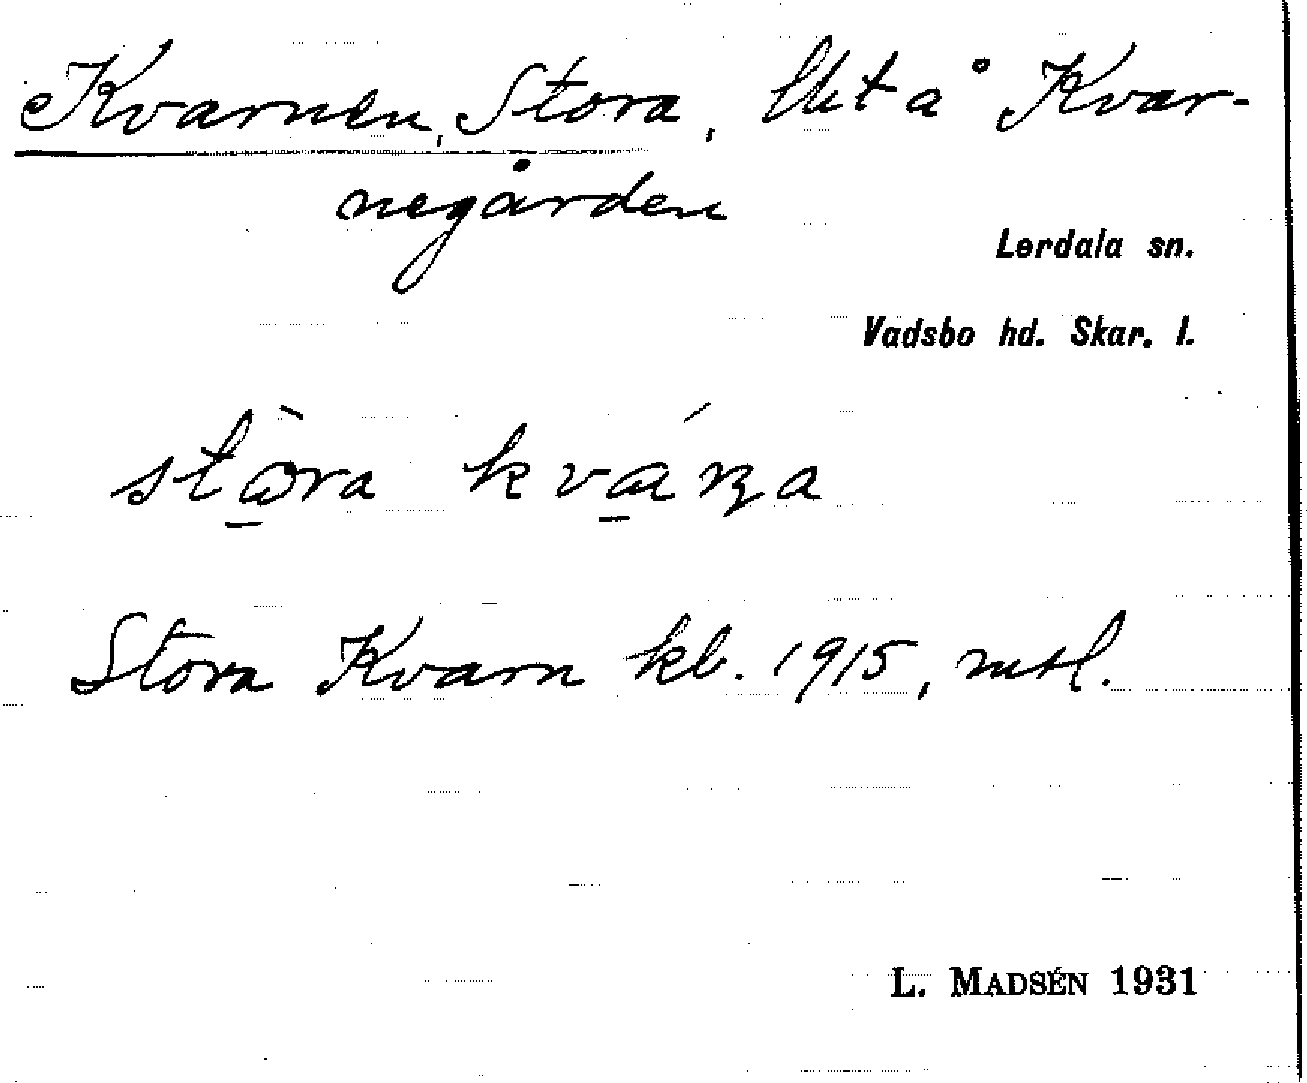 Kvarnen, Stora, lht å Kvar-
negården
Lerdala sn.
Vadsbo hd. Skar. l.
stora kvána
Stora Kvarn kb. 1915, mtl.
L. MADSÉN 1931